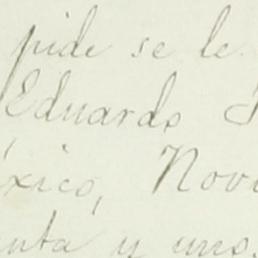 pide se le
Eduardo
éxico, Novi
enta y uno.